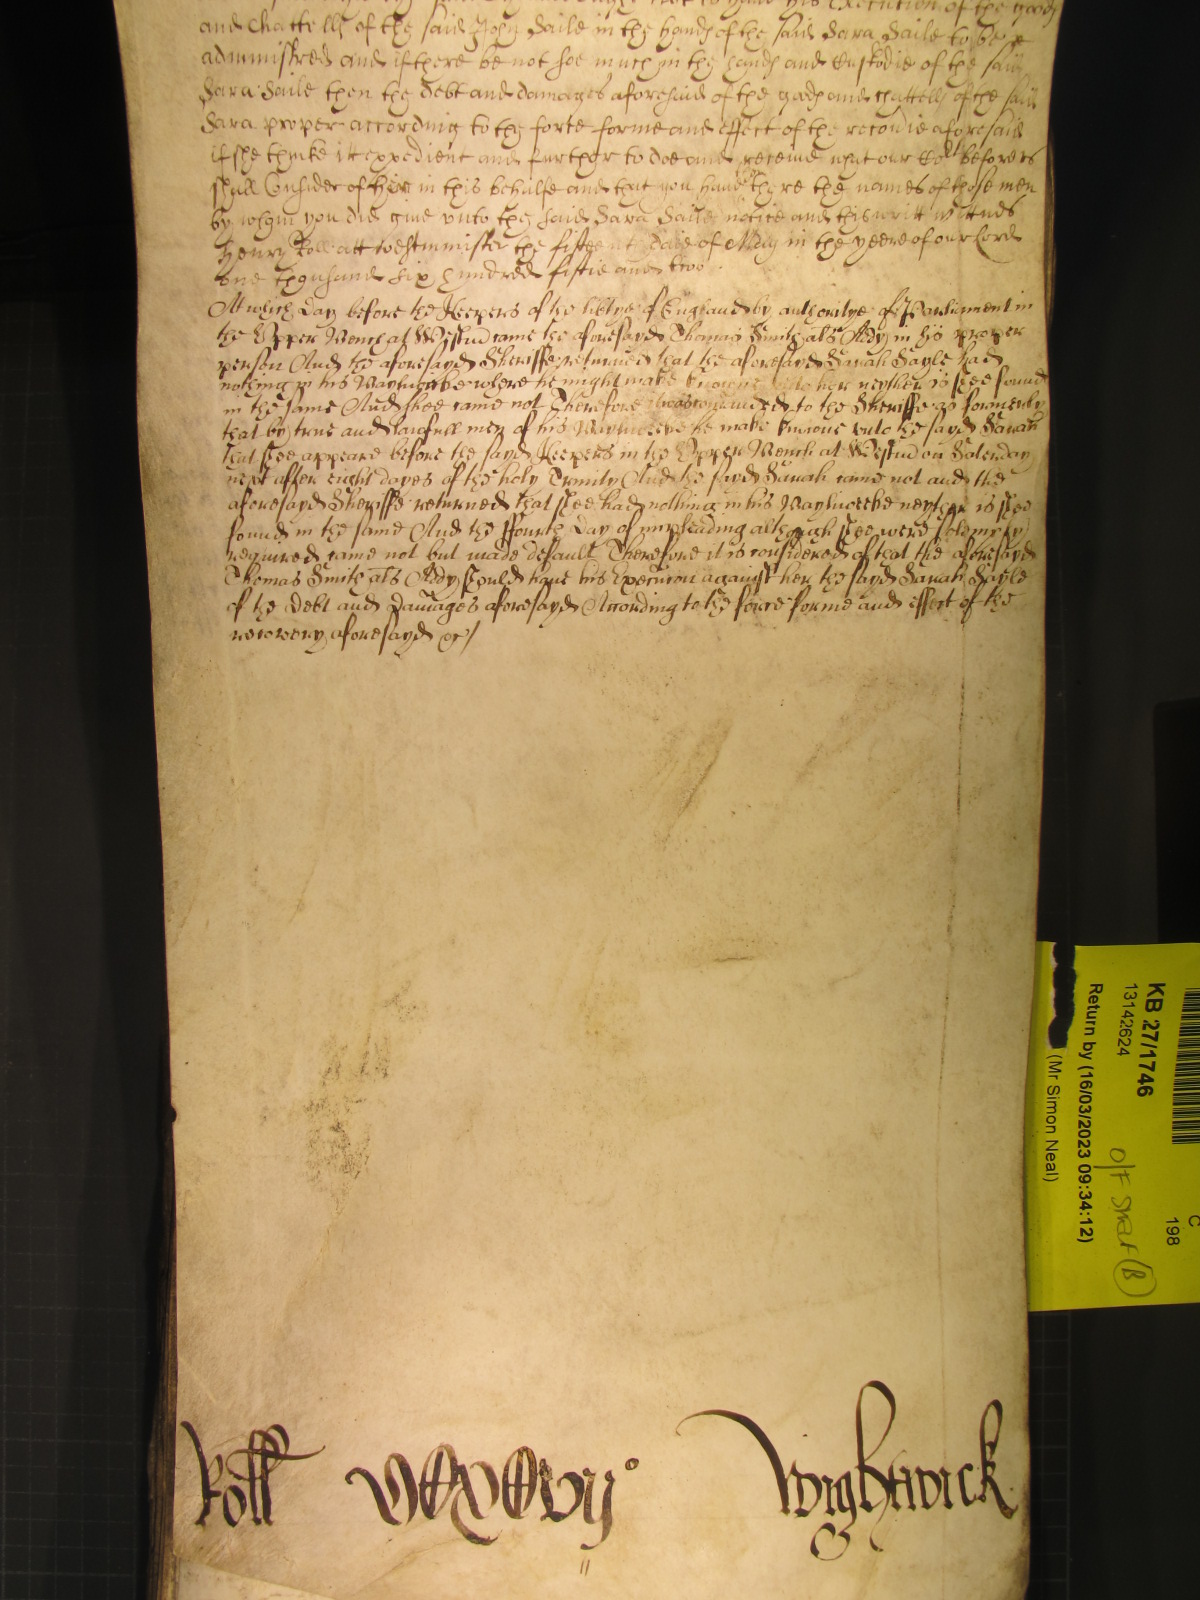 and Chattells of the said John Saile in the hands of the said Sara Saile to be
administred and if there be not soe much in the hands and Custodie of the said
Sara Saile then the debt and damages aforesaid of the goods and chattells of the said
Sara proper according to the force forme and effect of the recoūie aforesaid
if she thinke itt expedient and further to doe and receive what our Co͏̄rt before us
shall Consider of her in this behalfe and that you have there the names of those men
by whom you did give unto the said Sara Saile notice and this writt wittnes
Henry Roll att westminster the fifteenth daie of May in the yeere of our Lord
one thousand six hundred fiftie and two
At which day before the Keepers of the libtye of England by authoritye of Parliament in
the Upper Bench at Westm͏̄ came the aforesayd Thomas Smith al͏̄s Addy in his proper
person And the aforesayd Sheriffe returned that the aforesayd Sarah Sayle had
nothing in his Baylweeke where he might make knowne unto her neyther is shee found
in the same And shee came not Therefore it was com͏̄anded to the Sheriffe as formerly
that by true and lawfull men of his Baylweeke he make knowne unto the sayd Sarah
that shee appeare before the sayd Keepers in the Upper Bench at Westm͏̄ on Saterday
next after eight dayes of the holy Trinity And the sayd Sarah came not and the
aforesayd Sheriffe returned that shee had nothing in his Baylweeke neyther is shee
found in the same And the ffourth day of impleading although shee were solemply
required came not but made default Therefore it is considered of that the aforesayd
Thomas Smith al͏̄s Addy should have his Execucon against her the sayd Sarah Sayle
of the debt and damages aforesayd According to the force forme and effect of the
recovery aforesayd &c/
Roll
Wightwick
KB 27/1746
13142624
Return by (16/03/2023 09:34:12)
(Mr Simon Neal)
C
198
O/F Start B